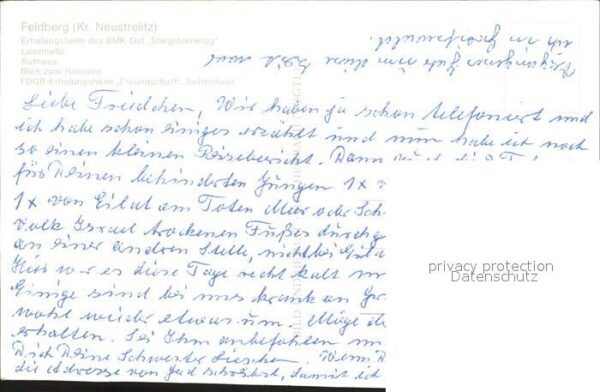 Feldberg (Kr. Neustrelitz)
Erholungsheim des BMK-Ost „Stieglitzenkrug“
Luzinhalle
Rathaus
Blick zum Haussee
FDGB-Erholungsheim „Freundschaft“,
Liebe Friedchen, Wir haben ja schon telefoniert und
ich habe schon einiges erzählt und nun habe ich noch
so einen kleinen Reisebericht. Dann
für Deinen behinderten Jungen 1x
1x von Eilat am Toten Meer oder Sch
Volk Israel trockenen Fußes durchg
an einer andren Stelle, nicht bei Eila
Hier war es diese Tage recht kalt
Einige sind bei uns krank an Gr
wohl wieder etwas um. Möge
erhalten. Sei Ihm anbefohlen
Dich Deine Schwester Lieschen. Wenn
die Adresse von schreibst, damit ich
privacy protection
Datenschutz